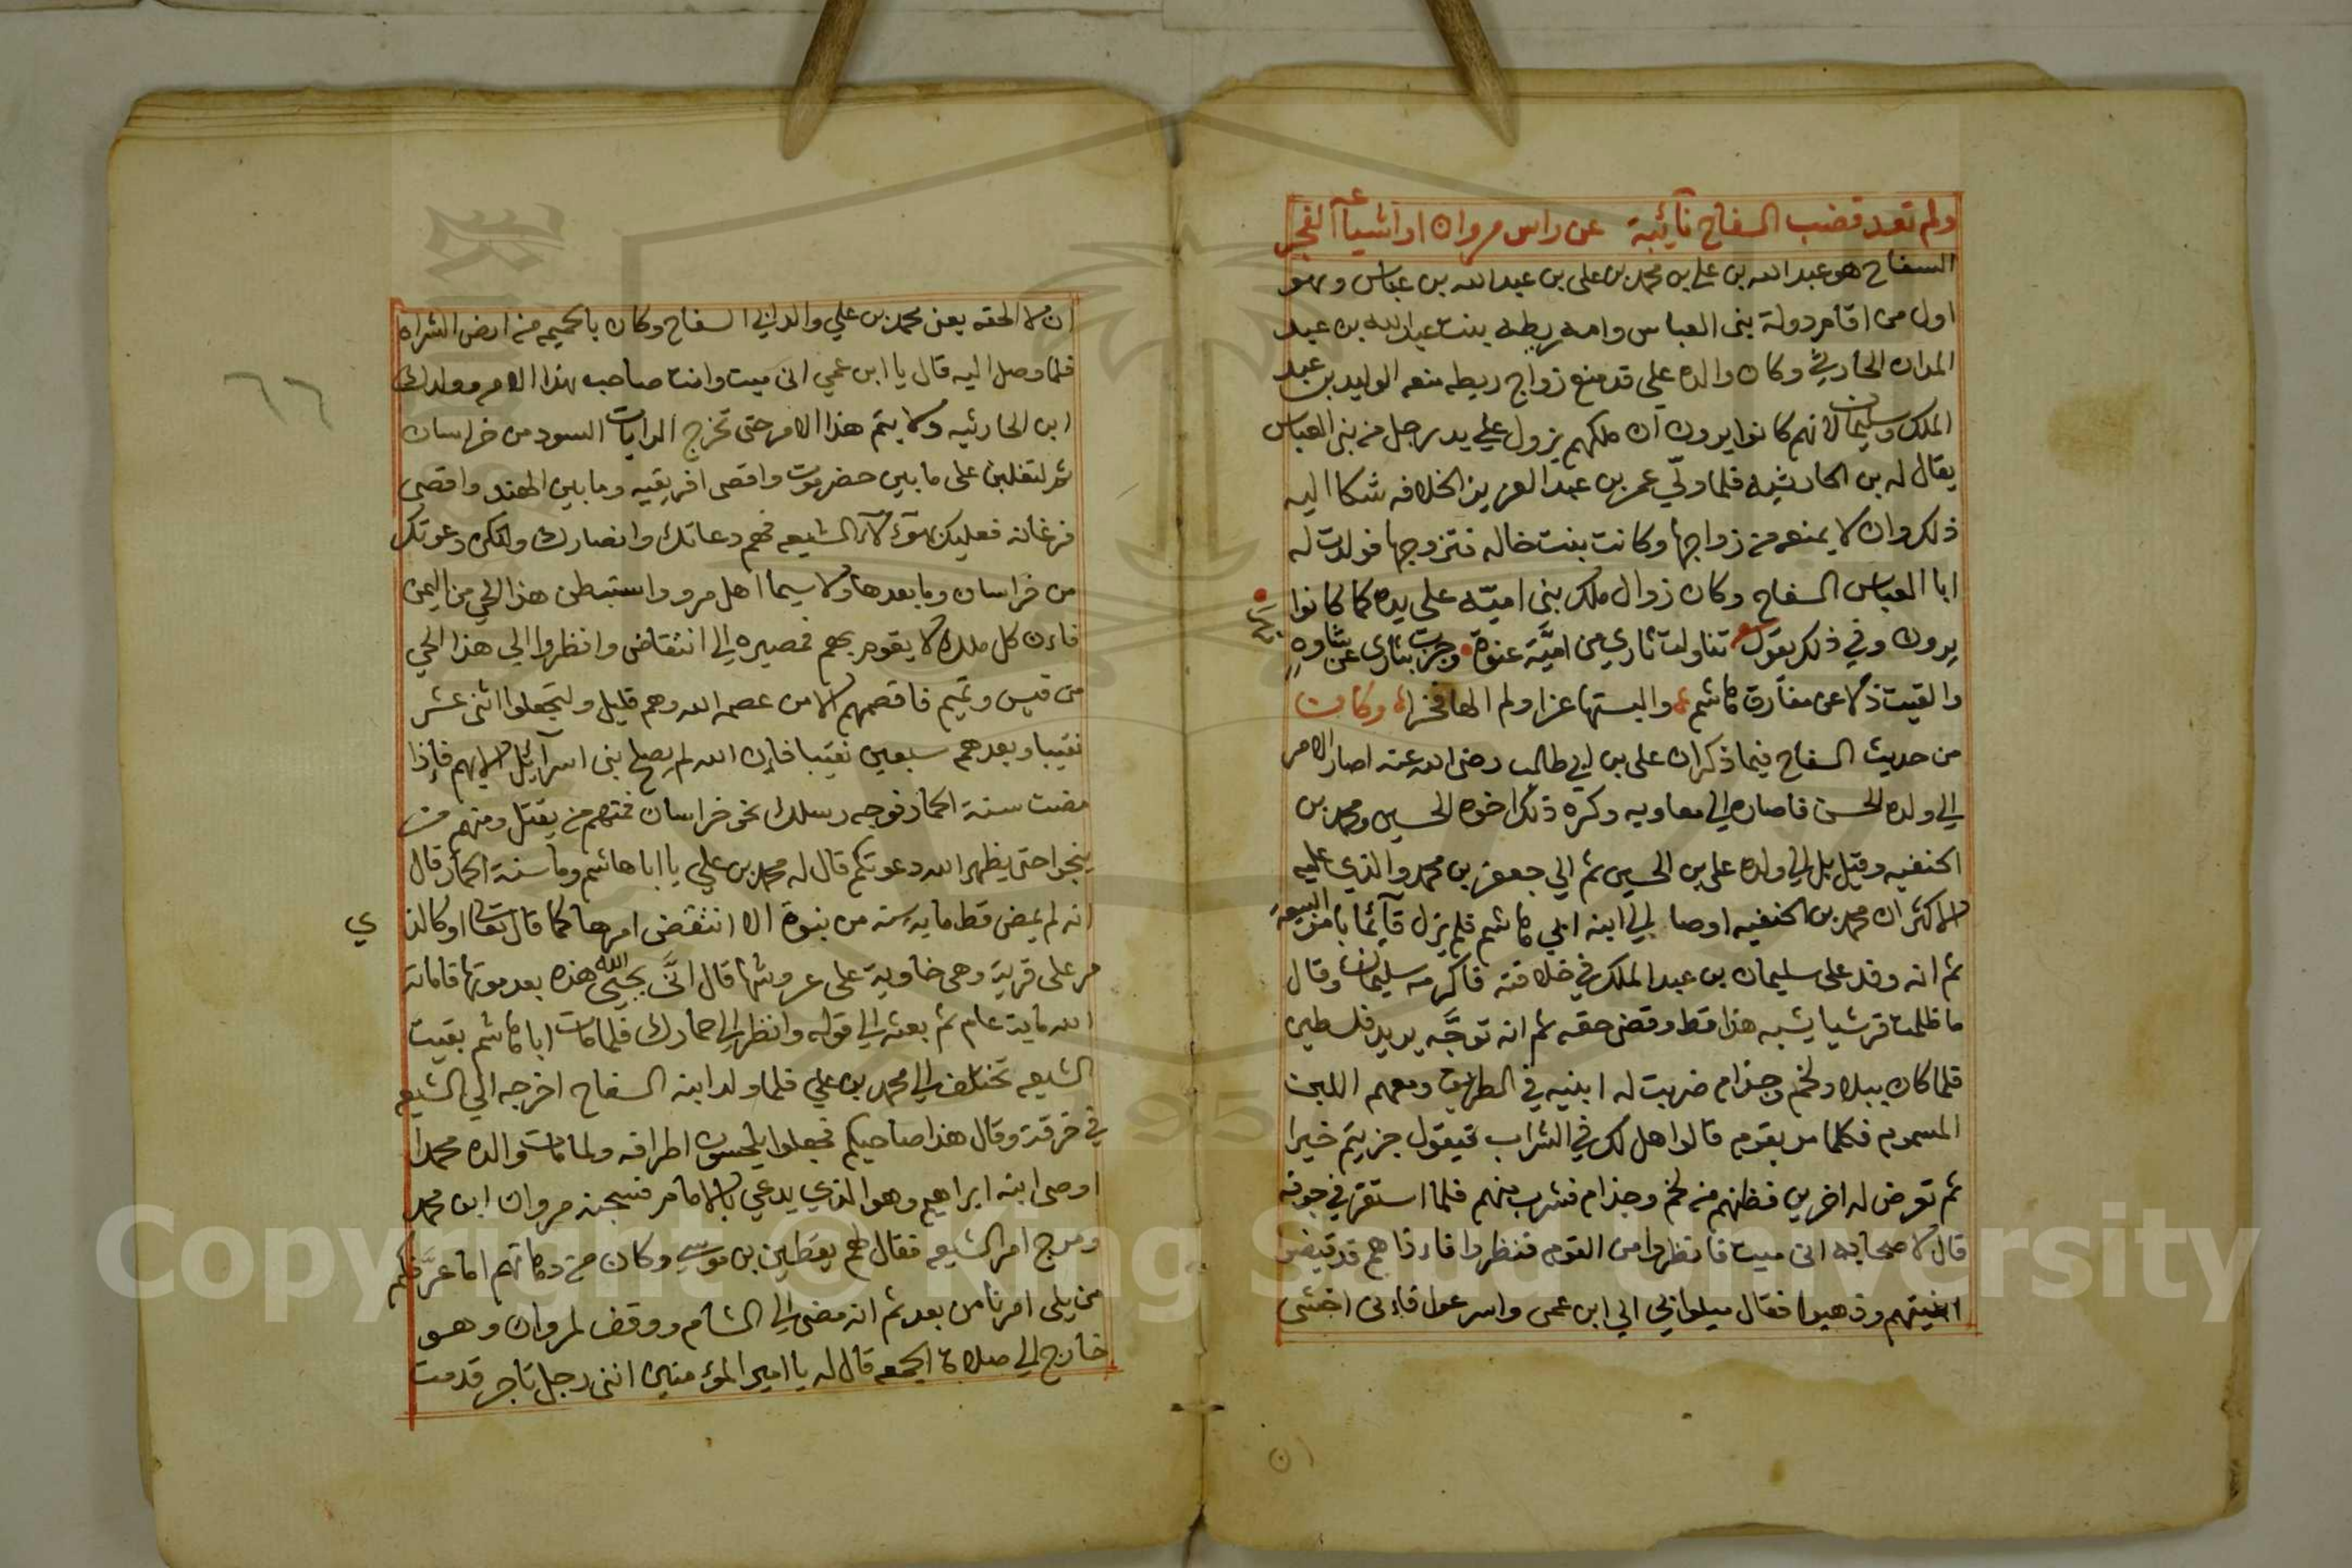 ولم تعد قضب السفاح نآئبة عن راس مروان او اشياعه الفجر
السفاح هو عبد الله بن علي بن محمد بن علي بن عبد الله بن عباس وهو
اول من اقام دولة بنى العباس وامه ريطه بنت عبد الله بن عبد
المدان الحارثي وكان والده علي قد منع زواج ريطه منعه الوليد بن عبد
الملك وسليمان لانهم كانوا يرون ان ملكهم يزول علي يد رجل من بنى العباس
يقال له بن الحارثيه فلما ولّي عمر بن عبد العزيز الخلافه شكا اليه
ذلك وان لا يمنعه من زواجها وكانت بنت خاله فتزوجها فولدت له
ابا العباس السفاح وكان زوال ملك بنى اميّه على يده كما كانوا
يرون وفي ذلك يقول تناولت ثاري من اميَّة عنوة وحزت
والقيت ذلا عن مفارق هاشم والبستها عزا ولم الها فخرا وكان
من حديث السفاح فيما ذكر ان على بن ابي طالب رضى الله عنه اصار الامر
الي ولده الحسن فاصاره الي معاويه وكره ذلك اخوه الحسين ومحمد بن
الحنفيه وقيل بل الي ولده على بن الحسين ثم الي جعفر بن محمد والذي عليه
الاكثر ان محمد بن الحنفيه اوصا الي ابنه ابي هاشم فلم يزل قآئما بامر الشيعه
ثم انه وفد على سليمان بن عبد الملك في خلافته فاكرمه سليمان وقال
ما ظلمت قرشيا يشبه هذا قط وقضى حقه ثم انه توجَّه يريد فلسطين
فلما كان ببلاد لخم وجذام ضربت له ابنيه في الطريق ومعهم اللبن
المسموم فكلما مر بقوم قالوا هل لك في الشراب فيقول جزيتم خيرا
ثم تعرض له اخرين فظنهم من لخم وجذام فشرب منهم فلما استقر في جوفه
قال لاصحابه انى ميت فانظروا من القوم فنظروا فاذا هم قد قوضوا
ابنيتهم وذهبوا فقال ميلوا بي الي ابن عمى واسرعوا فاني اخشى
ان لا الحقه يعنى محمد بن علي والد ابي السفاح وكان بالحميمه من ارض الشراه
فلما وصل اليه قال يا ابن عمي انى ميت وانت صاحب هذا الامر وولدك
ابن الحارثيه ولا يتم هذا الامر حتى تخرج الرايات السود من خراسان
ثم لتغلبن على ما بين حضرموت واقصى افريقيه وما بين الهند واقصى
فرغانه فعليك بهؤلآء الشيعه فهم دعاتك وانصارك ولتكن دعوتك
من خراسان وما بعدها ولا سيما اهل مرو واستبطن هذا الحي من اليمن
فان كل ملك لا يقوم بهم فمصيره الي انتقاض وانظروا الي هذا الحي
من قيس وتميم فاقصهم الا من عصم الله وهم قليل ولتجعلوا اثنى عشر
نقيبا وبعدهم سبعين نقيبا فان الله لم يصلح بنى اسرآئيل الا بهم فاذا
مضت سنة الحمار فوجه رسلك نحو خراسان فمنهم من يقتل ومنهم من
ينجوا حتى يظهر الله دعوتكم قال له محمد بن علي يا ابا هاشم وما سنة الحمار قال
انه لم يمض قط مايه سنه من بنوة الا انتقض امرها كما قال تعالى او كالذي
مر على قرية وهى خاوية على عروشها قال انَّى يحيى هذه الله بعد موتها فاماته
الله ماية عام ثم بعثه الي قوله وانظر الي حمارك فلما مات ابا هاشم بقيت
الشيعه تختلف الي محمد بن علي فلما ولد ابنه السفاح اخرجه الي الشيعه
في خرقة وقال هذا صاحبكم فجعلوا يلحسون اطرافه ولما مات والده محمدا
اوصى ابنه ابراهيم وهو الذي يدعي بالامام فسجنه مروان ابن محمد
ومرج امر الشيعه فقال لهم يقطين بن موسى وكان من دهاتهم اما عرَّفكم
من يلى امرنا من بعد ثم انه مضى الي الشام ووقف لمروان وهو
خارج الي صلاة الجمعه قال له يا امير المؤمنين اننى رجل تاجر قدمت
٦٦
Copyright © King Saud University
195